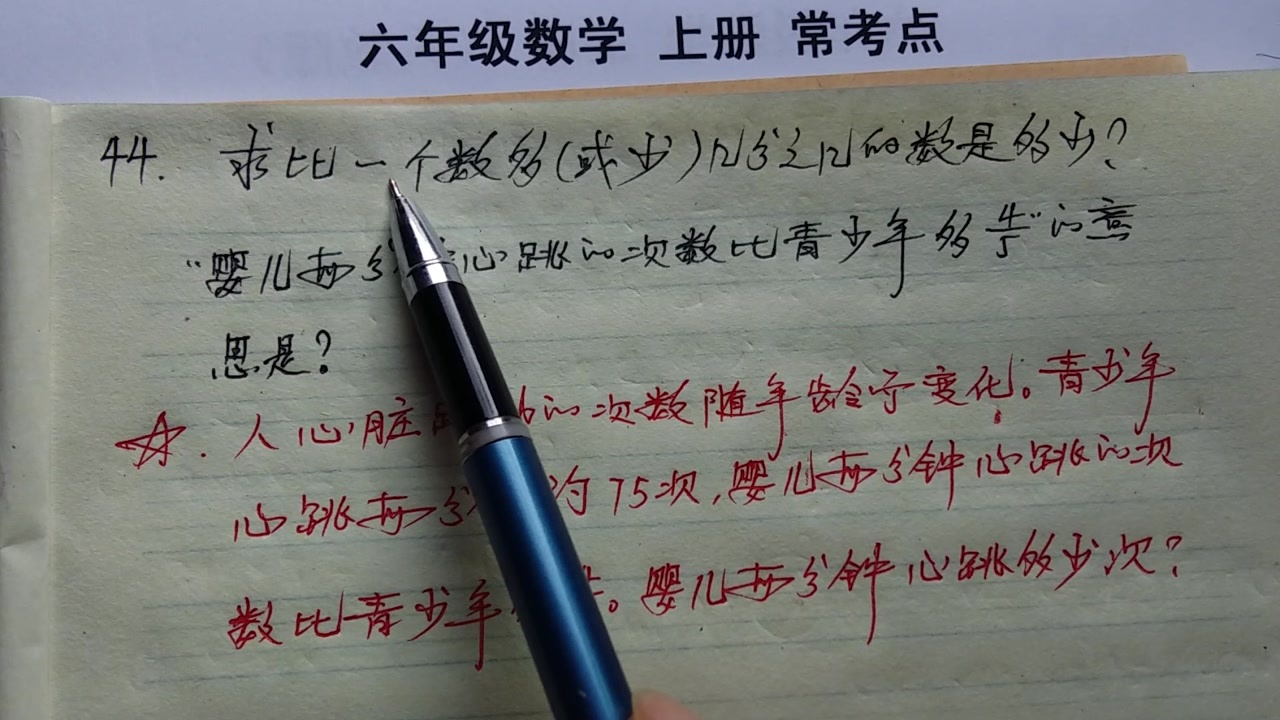 六年级数学 上册 常考点
44. 求比一个数多(或少)几分之几的数是多少?
“婴儿每分 心跳的次数比青少年多4/5”的意
思是?
☆. 人心脏 的次数随年龄而变化。青少年
心跳每分 约75次,婴儿每分钟心跳的次
数比青少年 。婴儿每分钟心跳多少次?